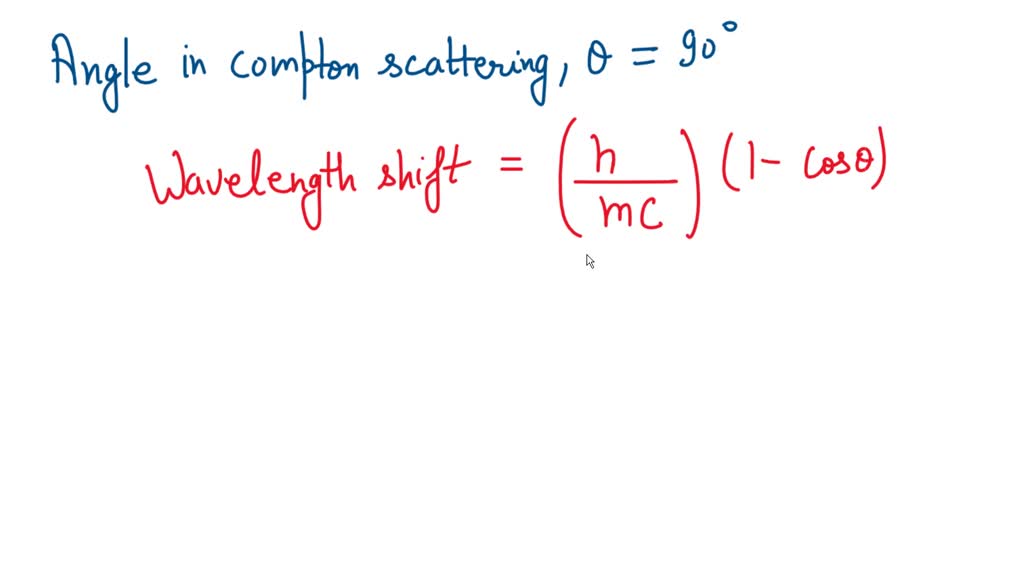 Angle in compton scattering, θ = 90°
Wavelength shift = (h/mc) (1- cosθ)